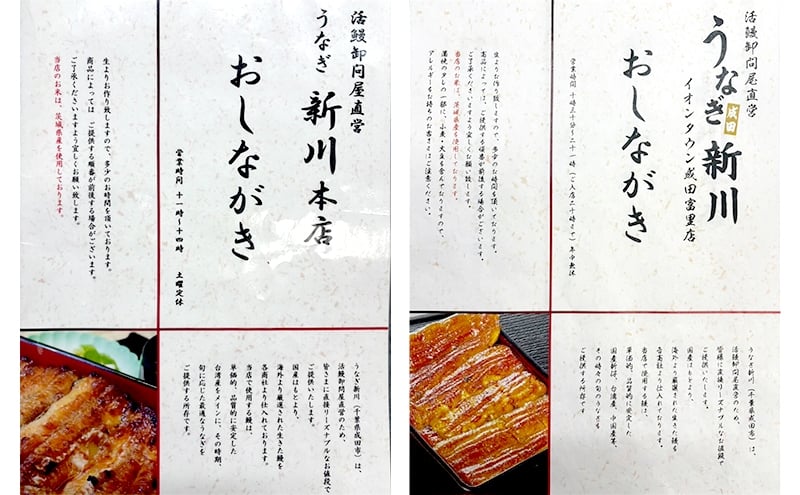 活鰻卸問屋直営
うなぎ 新川本店
おしながき
営業時間 十一時～十四時 土曜定休
生よりお作り致しますので、多少のお時間を頂いております。
商品によっては、ご提供する順番が前後する場合がございます。
ご了承くださいますよう宜しくお願い致します。
当店のお米は、茨城県産を使用しております。
うなぎ新川（千葉県成田市）は、
活鰻卸問屋直営のため、
皆さまに直接リーズナブルなお値段で
ご提供いたします。
国産はもとより、
海外より厳選された生きた鰻を
各商社より仕入れております。
当店で使用する鰻は、
単価的、品質的に安定した
台湾産をメインに、その時期、
旬に応じた最適なうなぎを
ご提供する所存です。
活鰻卸問屋直営
うなぎ 成田 新川
イオンタウン成田富里店
おしながき
営業時間 十時三十分～二十一時（ご入店二十時まで）年中無休
生よりお作り致しますので、多少のお時間を頂いております。
商品によっては、ご提供する順番が前後する場合がございます。
ご了承くださいますよう宜しくお願い致します。
当店のお米は、茨城県産を使用しております。
蒲焼のタレの一部に、小麦・大豆を含んでおりますので、
アレルギーをお持ちのお客さまはご注意ください。
うなぎ新川（千葉県成田市）は、
活鰻卸問屋直営のため、
皆様に直接リーズナブルなお値段で
ご提供いたします。
国産はもとより、
海外より厳選された生きた鰻を
各商社より仕入れております。
当店で使用する鰻は、
単価的、品質的に安定した
国産新仔、台湾産、中国産等、
その時々の旬のうなぎを
ご提供する所存です。